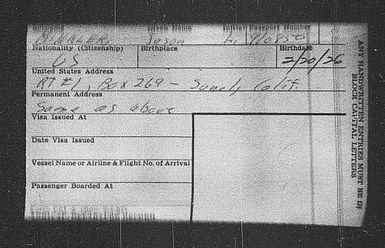 Initial Passport Number
Jason
Nationality (Citizenship) Birthplace Birthdate
US 2/20/26
United States Address
RT #1, Box 269 - Calif.
Permanent Address
Same as above
Visa Issued At
Date Visa Issued
Vessel Name or Airline & Flight No. of Arrival
Passenger Boarded At
ANY HANDWRITTEN ENTRIES MUST BE IN
BLOCK CAPITAL LETTERS